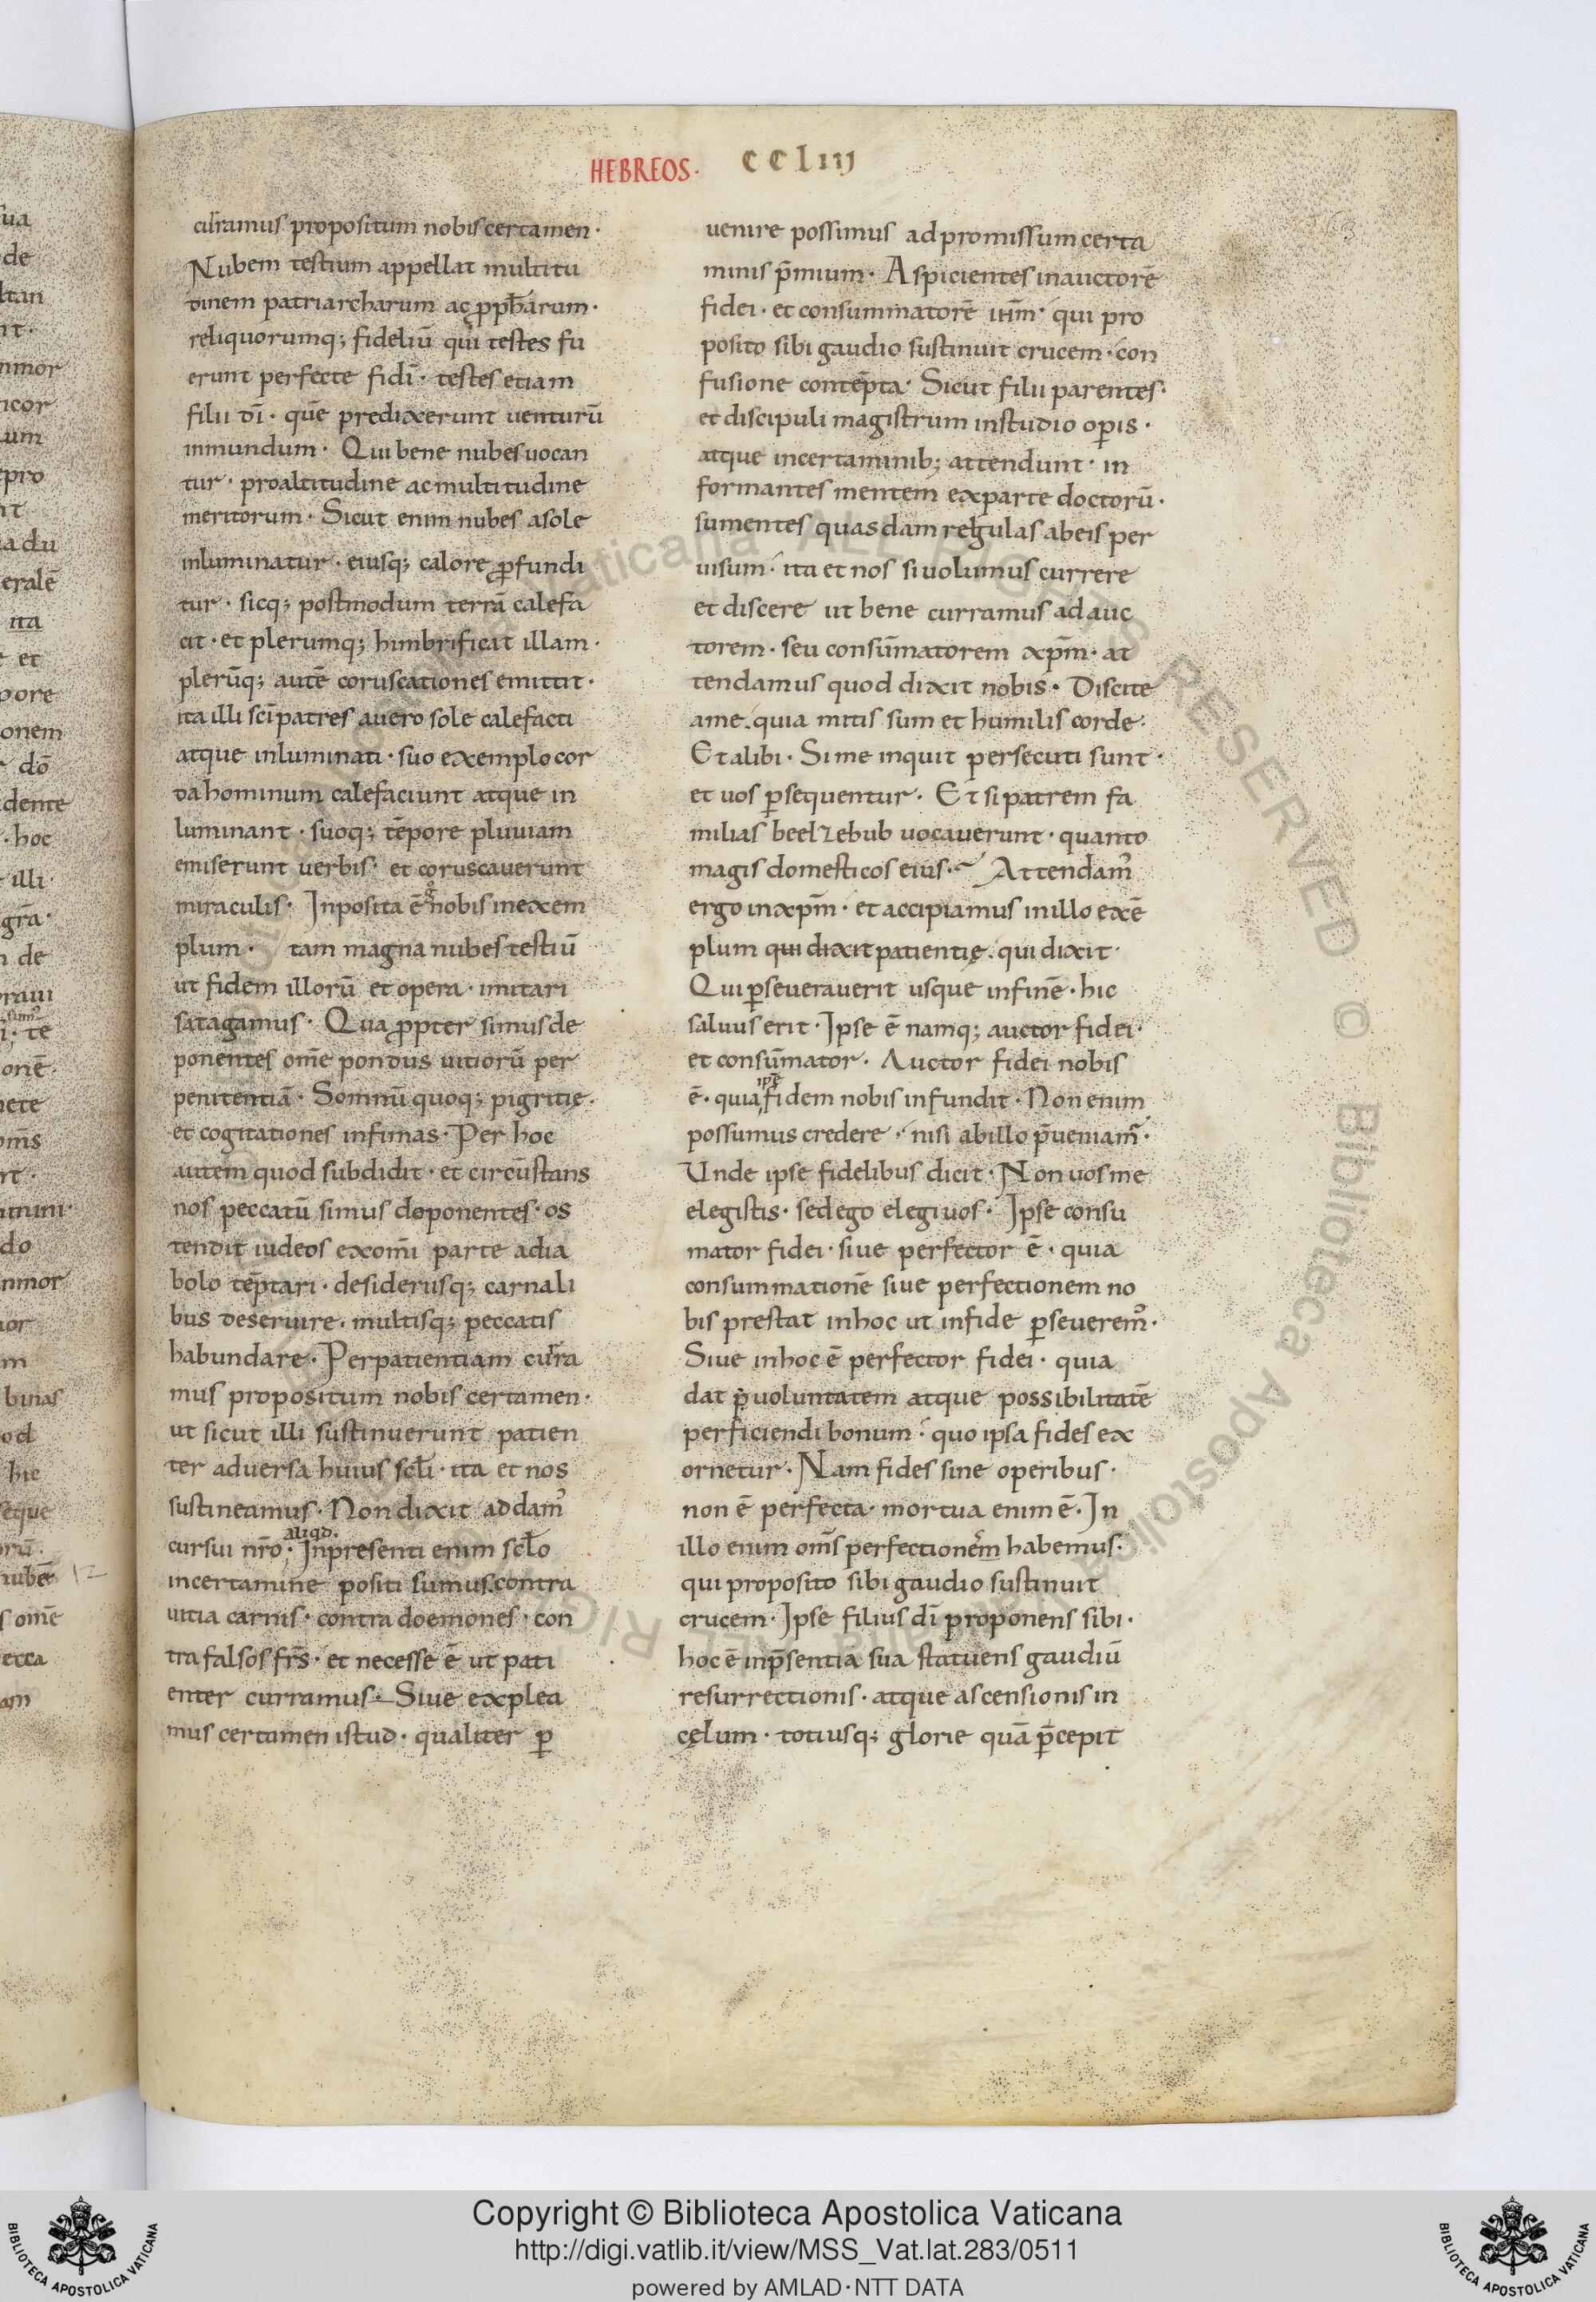 HEBREOS· CCLIII
curramus propositum nobis certamen·
Nubem testium appellat multitu
dinem patriarcharum ac p̄ph̄arum·
reliquorumq; fideliū qui testes fu
erunt perfecte fidī· testes etiam
filii dī· quē predixerunt venturū
inmundum· Qui bene nubes uocan
tur· pro altitudine ac multitudine
meritorum· Sicut enim nubes a sole
inluminatur· eiusq; calore ꝑfundi
tur· sicq; postmodum terrā calefa
cit· et plerumq; himbrificat illam·
plerūq; autē coruscationes emittit·
ita illi sc̄i patres a uero sole calefacti
atque inluminati· suo exemplo cor
da hominum calefaciunt atque in
luminant· suoq; tēpore pluuiam
emiserunt uerbis· et coruscauerunt
miraculis· Inposita ē g° nobis in exem
plum· tam magna nubes testiū
ut fidem illorū et opera· imitari
satagamus· Qua ꝓpter simus de
ponentes om̄e pondus uitiorū per
penitentiā· Somnū quoq; pigritię·
et cogitationes infimas· Per hoc
autem quod subdidit· et circūstans
nos peccatū simus deponentes· os
tendit iudeos ex om̄i parte a dia
bolo tēptari· desideriisq; carnali
bus deseruire· multisq; peccatis
habundare· Per patientiam curra
mus propositum nobis certamen·
ut sicut illi sustinuerunt patien
ter aduersa huius scl̄i· ita et nos
sustineamus· Non dixit addam᾽
aliqd·
cursui nr̄o· In presenti enim scl̄o
in certamine positi sumus· contra
uitia carnis· contra doemones· con
tra falsos fr̄s· et necesse ē ut pati
enter curramus· Siue explea
mus certamen istud· qualiter ꝑ
uenire possimus ad promissum certa
minis p̄mium· Aspicientes in auctorē
fidei· et consummatorē ih̄m· qui pro
posito sibi gaudio sustinuit crucem· con
fusione contēpta· Sicut filii parentes·
et discipuli magistrum in studio oꝑis·
atque in certaminib; attendunt· in
formantes mentem ex parte doctorū·
sumentes quasdam regulas ab eis per
uisum· ita et nos si uolumus currere
et discere ut bene curramus ad auc
torem· seu consūmatorem xp̄m· at
tendamus quod dixit nobis· Discite
a me· quia mitis sum et humilis corde·
Et alibi· Si me inquit persecuti sunt·
et uos ꝑsequentur· Et si patrem fa
milias beelzebub uocauerunt· quanto
magis domesticos eius· Attendam᾽
ergo in xp̄m· et accipiamus in illo exē
plum qui dixit patientię· qui dixit·
Qui ꝑseuerauerit usque in finē· hic
saluus erit· Ipse ē namq; auctor fidei·
et consūmator· Auctor fidei nobis
ipse
ē· quia fidem nobis infundit· Non enim
possumus credere· nisi ab illo p̄ueniam᾽·
Unde ipse fidelibus dicit· Non uos me
elegistis· sed ego elegi uos· Ipse consu
mator fidei· siue perfector ē· quia
consummationē siue perfectionem no
bis prestat in hoc ut in fide ꝑseuerem᾽·
Siue in hoc ē perfector fidei· quia
dat uoluntatem atque possibilitatē
perficiendi bonum· quo ipsa fides ex
ornetur· Nam fides sine operibus·
non ē perfecta· mortua enim ē· In
illo enim om̄s perfectionem habemus·
qui proposito sibi gaudio sustinuit
crucem· Ipse filius dī proponens sibi·
hoc ē in p̄sentia sua statuens gaudiū
resurrectionis· atque ascensionis in
cęlum· totiusq; glorie quā p̄cepit
Copyright © Biblioteca Apostolica Vaticana
http://digi.vatlib.it/view/MSS_Vat.lat.283/0511
powered by AMLAD·NTT DATA